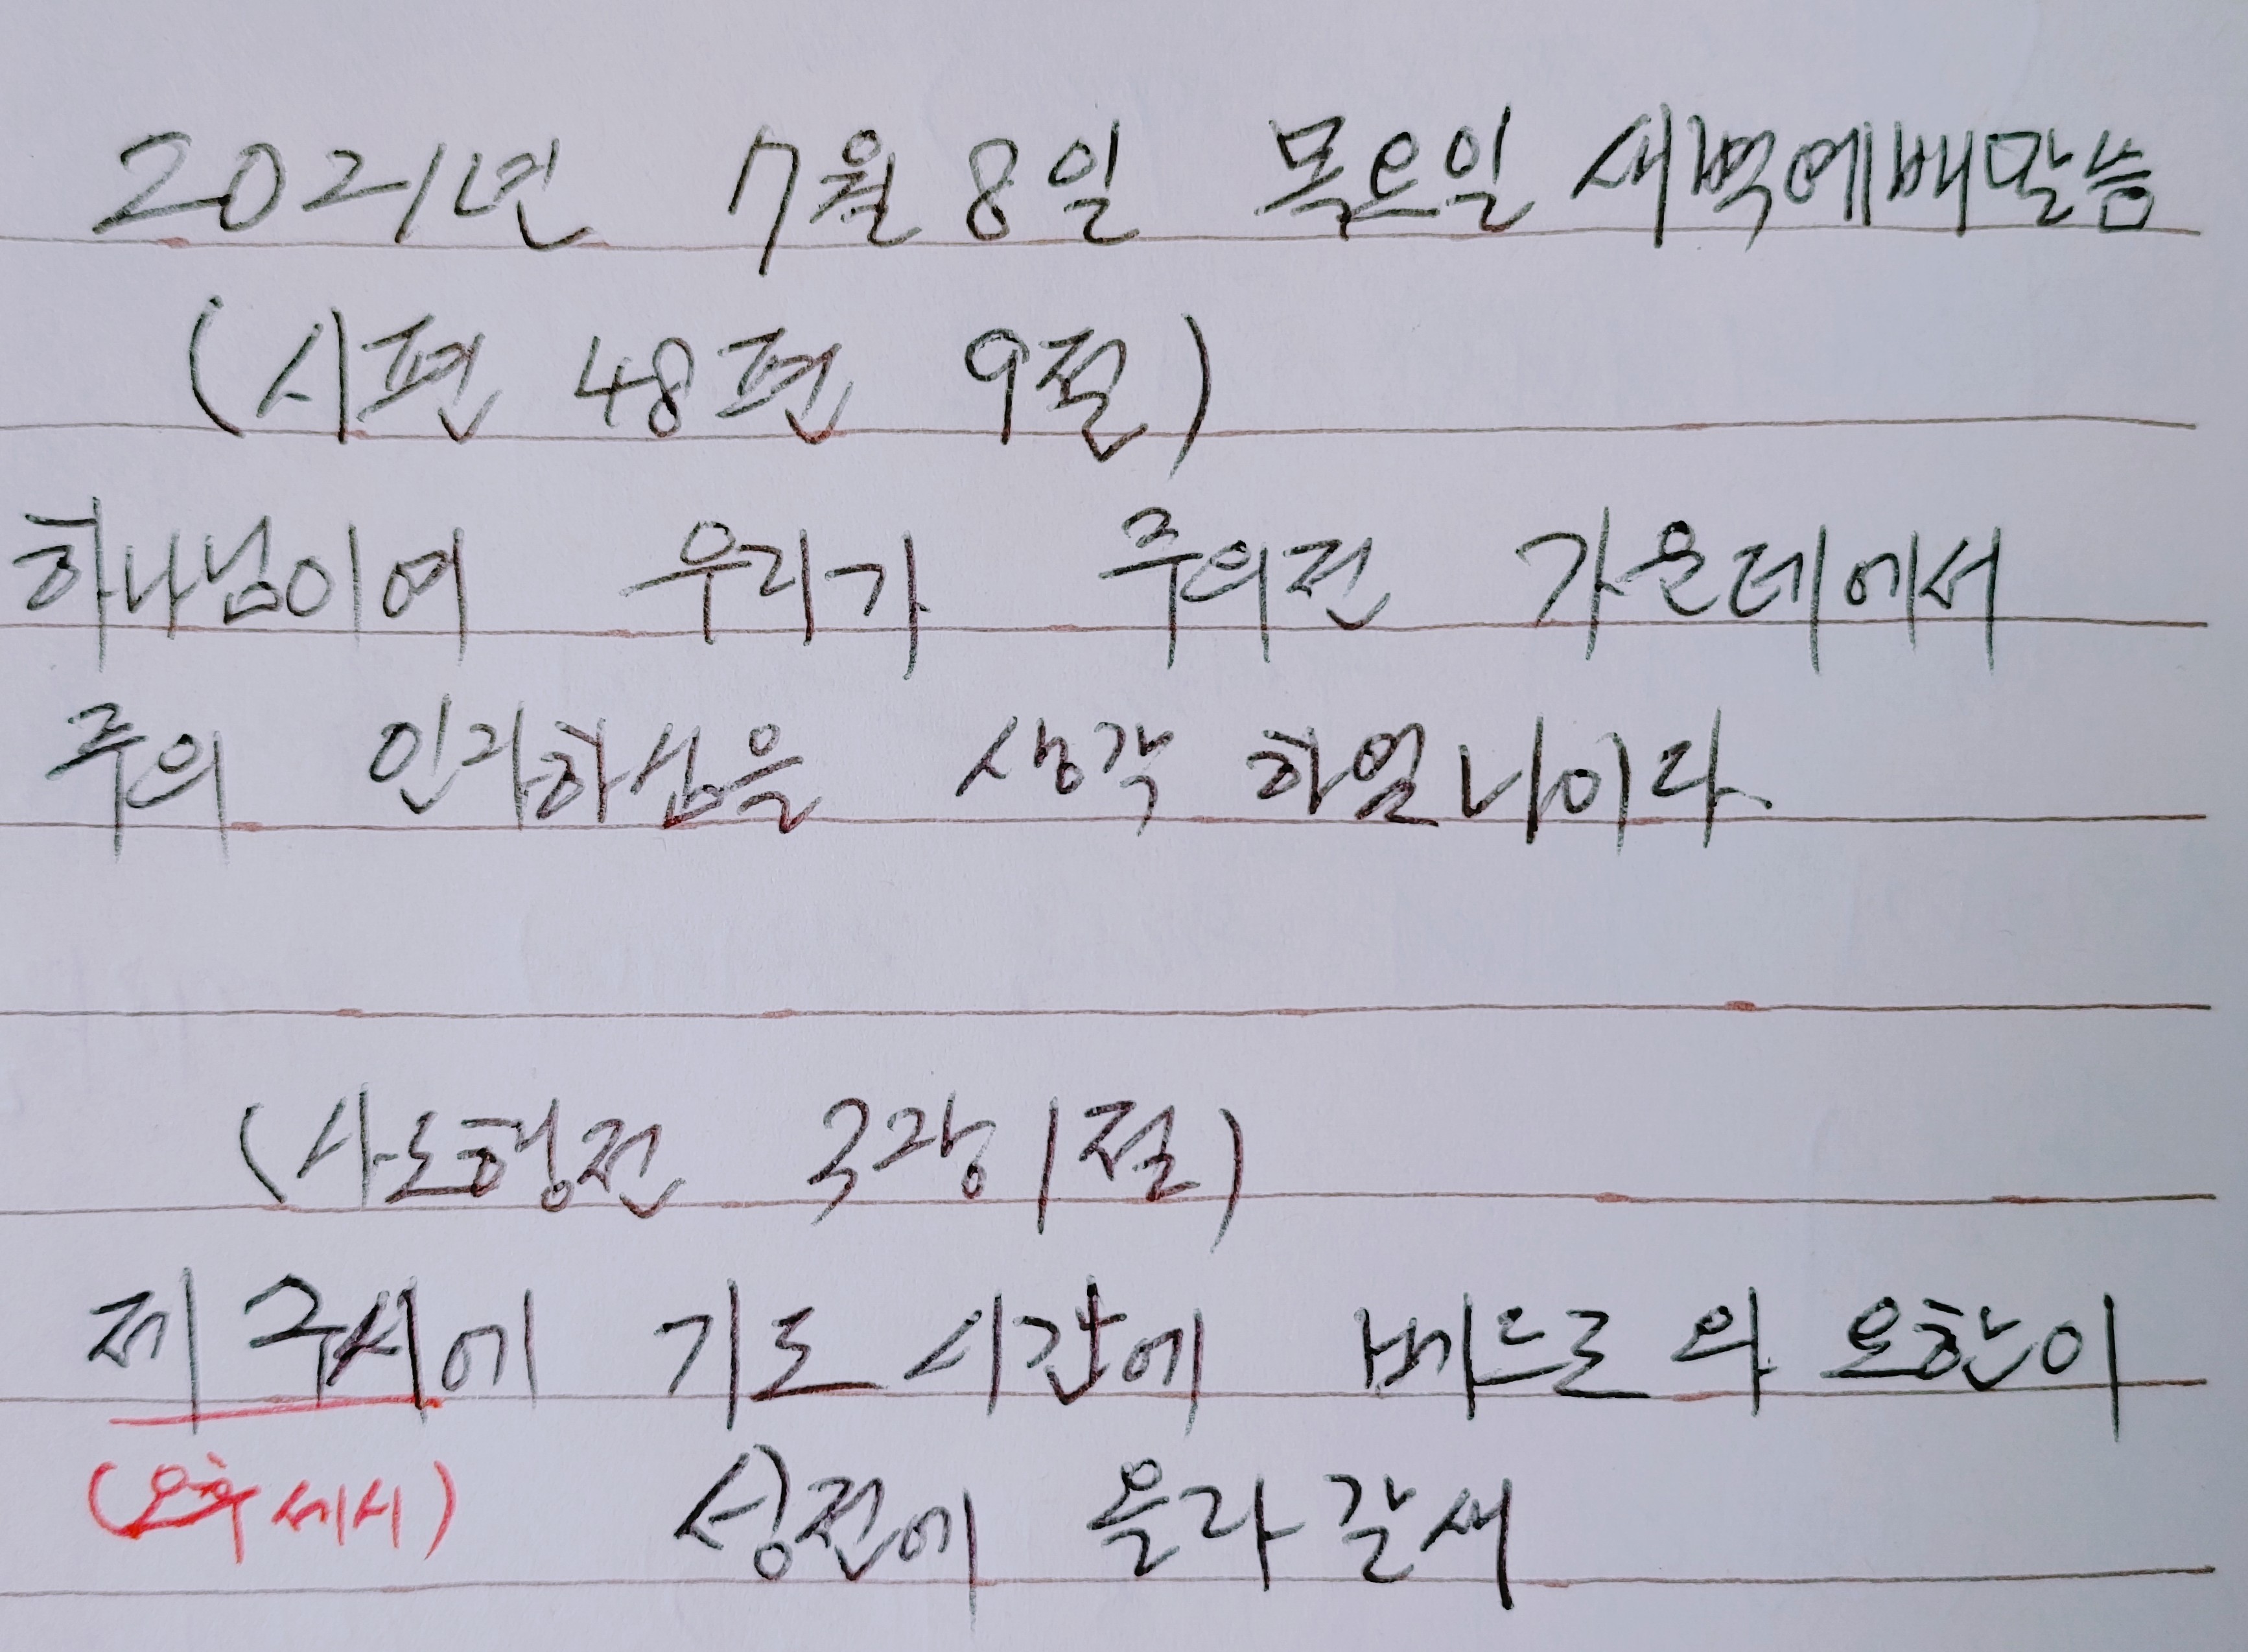 2021년 7월 8일 목요일 새벽예배말씀
(시편 48편 9절)
하나님이여 우리가 주의전 가운데에서
주의 인자하심을 생각 하였나이다
(사도행전 3장 1절)
제 구시에 기도 시간에 베드로 와 요한이
(오후 세시) 성전에 올라 갈새